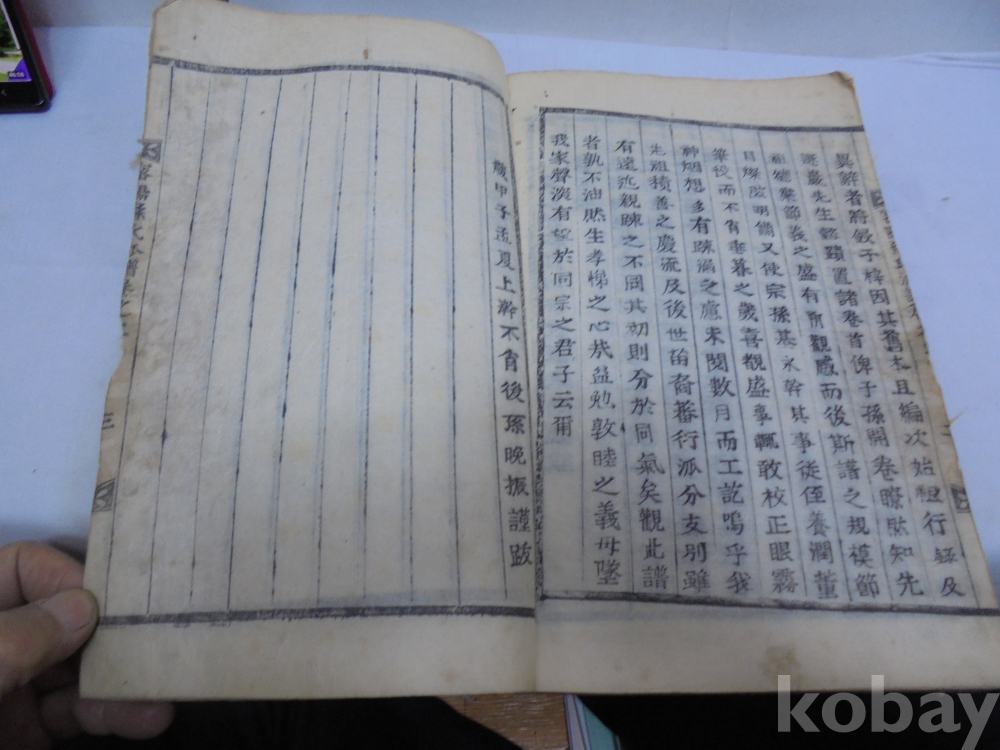 異辭者將鋟于梓因其舊本且編次始祖行錄及
巖先生懿蹟置諸卷首俾子孫開卷瞭然知先
祖節義之盛有所觀感而後斯譜之規模節
目燦然明備又使宗孫基永幹其事從侄養潤董
筆役而不肖垂暮之歲喜觀盛事輒敢校正眼霧
神烟想多有疎漏之慮未閱數月而工訖嗚乎我
先祖積善之慶流及後世苗裔蕃衍派分支別雖
有遠近親疎之不同其初則分於同氣矣觀此譜
者孰不油然生孝悌之心哉益勉敦睦之義毋墜
我家聲深有望於同宗之君子云爾
歲甲子孟夏上澣不肖後孫晩振謹跋
三
kobay